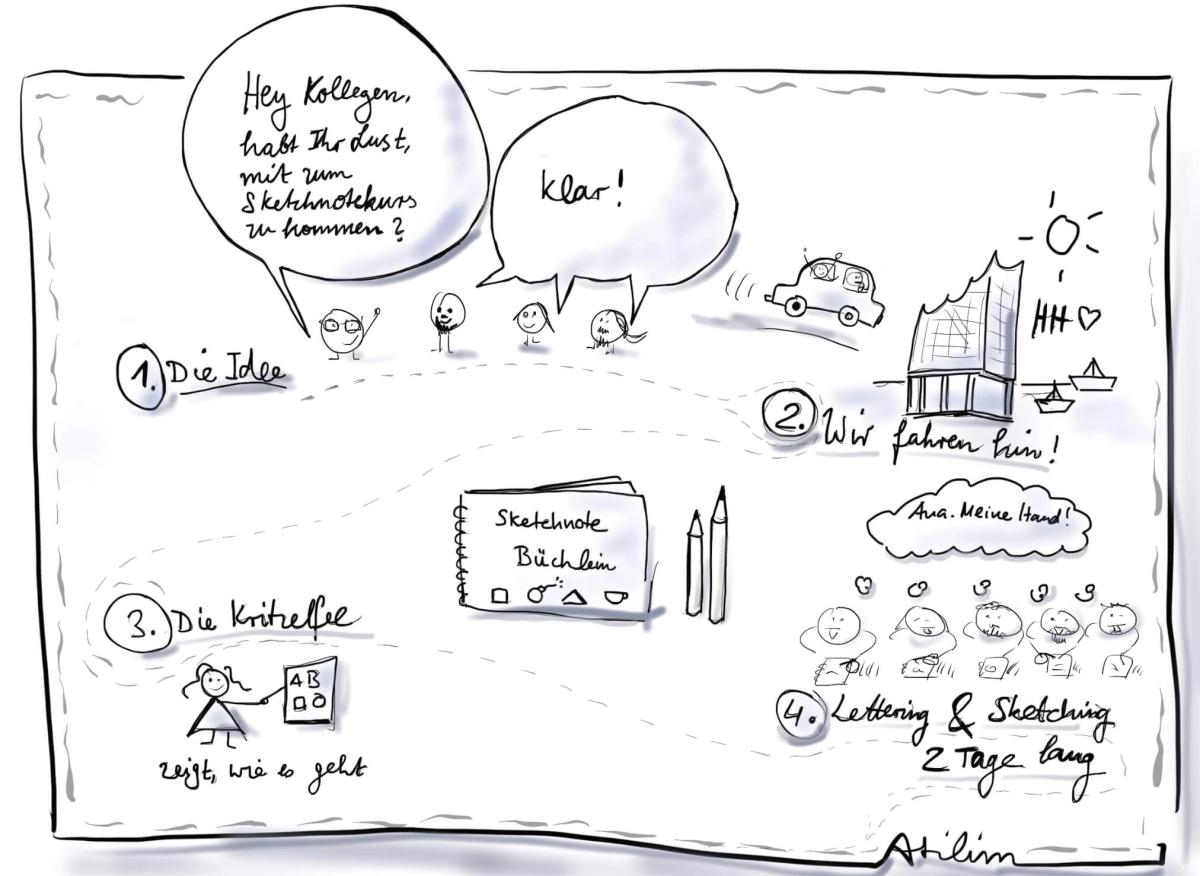 Hey Kollegen,
habt Ihr Lust,
mit zum
Sketchnotekurs
zu kommen?
klar!
1. Die Idee
HH
2. Wir fahren hin!
Sketchnote
Büchlein
Aua. Meine Hand!
3. Die Kritzelfee
AB
zeigt, wie es geht
4. Lettering & Sketching
2 Tage lang
Atilim